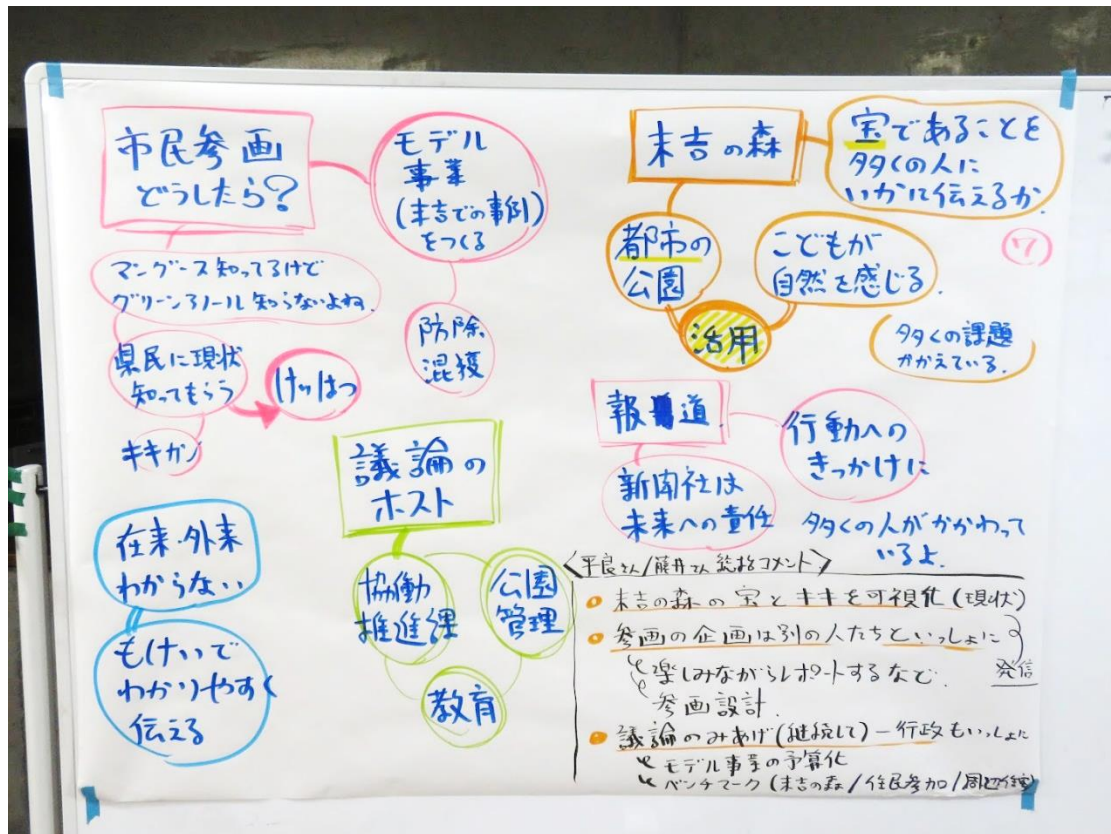 市民参画
どうしたら?
モデル
事業
(末吉での事例)
をつくる
防除
混獲
マングース知ってるけど
グリーンアノール知らないよね.
県民に現状
知ってもらう
けいはつ
キキカン
在来・外来
わからない
もけいで
わかりやすく
伝える
議論の
ホスト
協働
推進課
公園
管理
教育
末吉の森
宝であることを
多くの人に
いかに伝えるか.
都市の
公園
こどもが
自然を感じる.
活用
多くの課題
かかえている.
7
報道
行動への
きっかけに
新聞社は
未来への責任
多くの人がかかわって
いるよ.
<平良さん/藤井さん 総括コメント>
末吉の森の宝とキキを可視化(現状)
参画の企画は別の人たちといっしょに
楽しみながらレポートするなど.
参画設計.
発信
議論のみあげ(継続して)-行政もいっしょに
モデル事業の予算化
ベンチマーク(末吉の森/住民参加/周辺住宅)